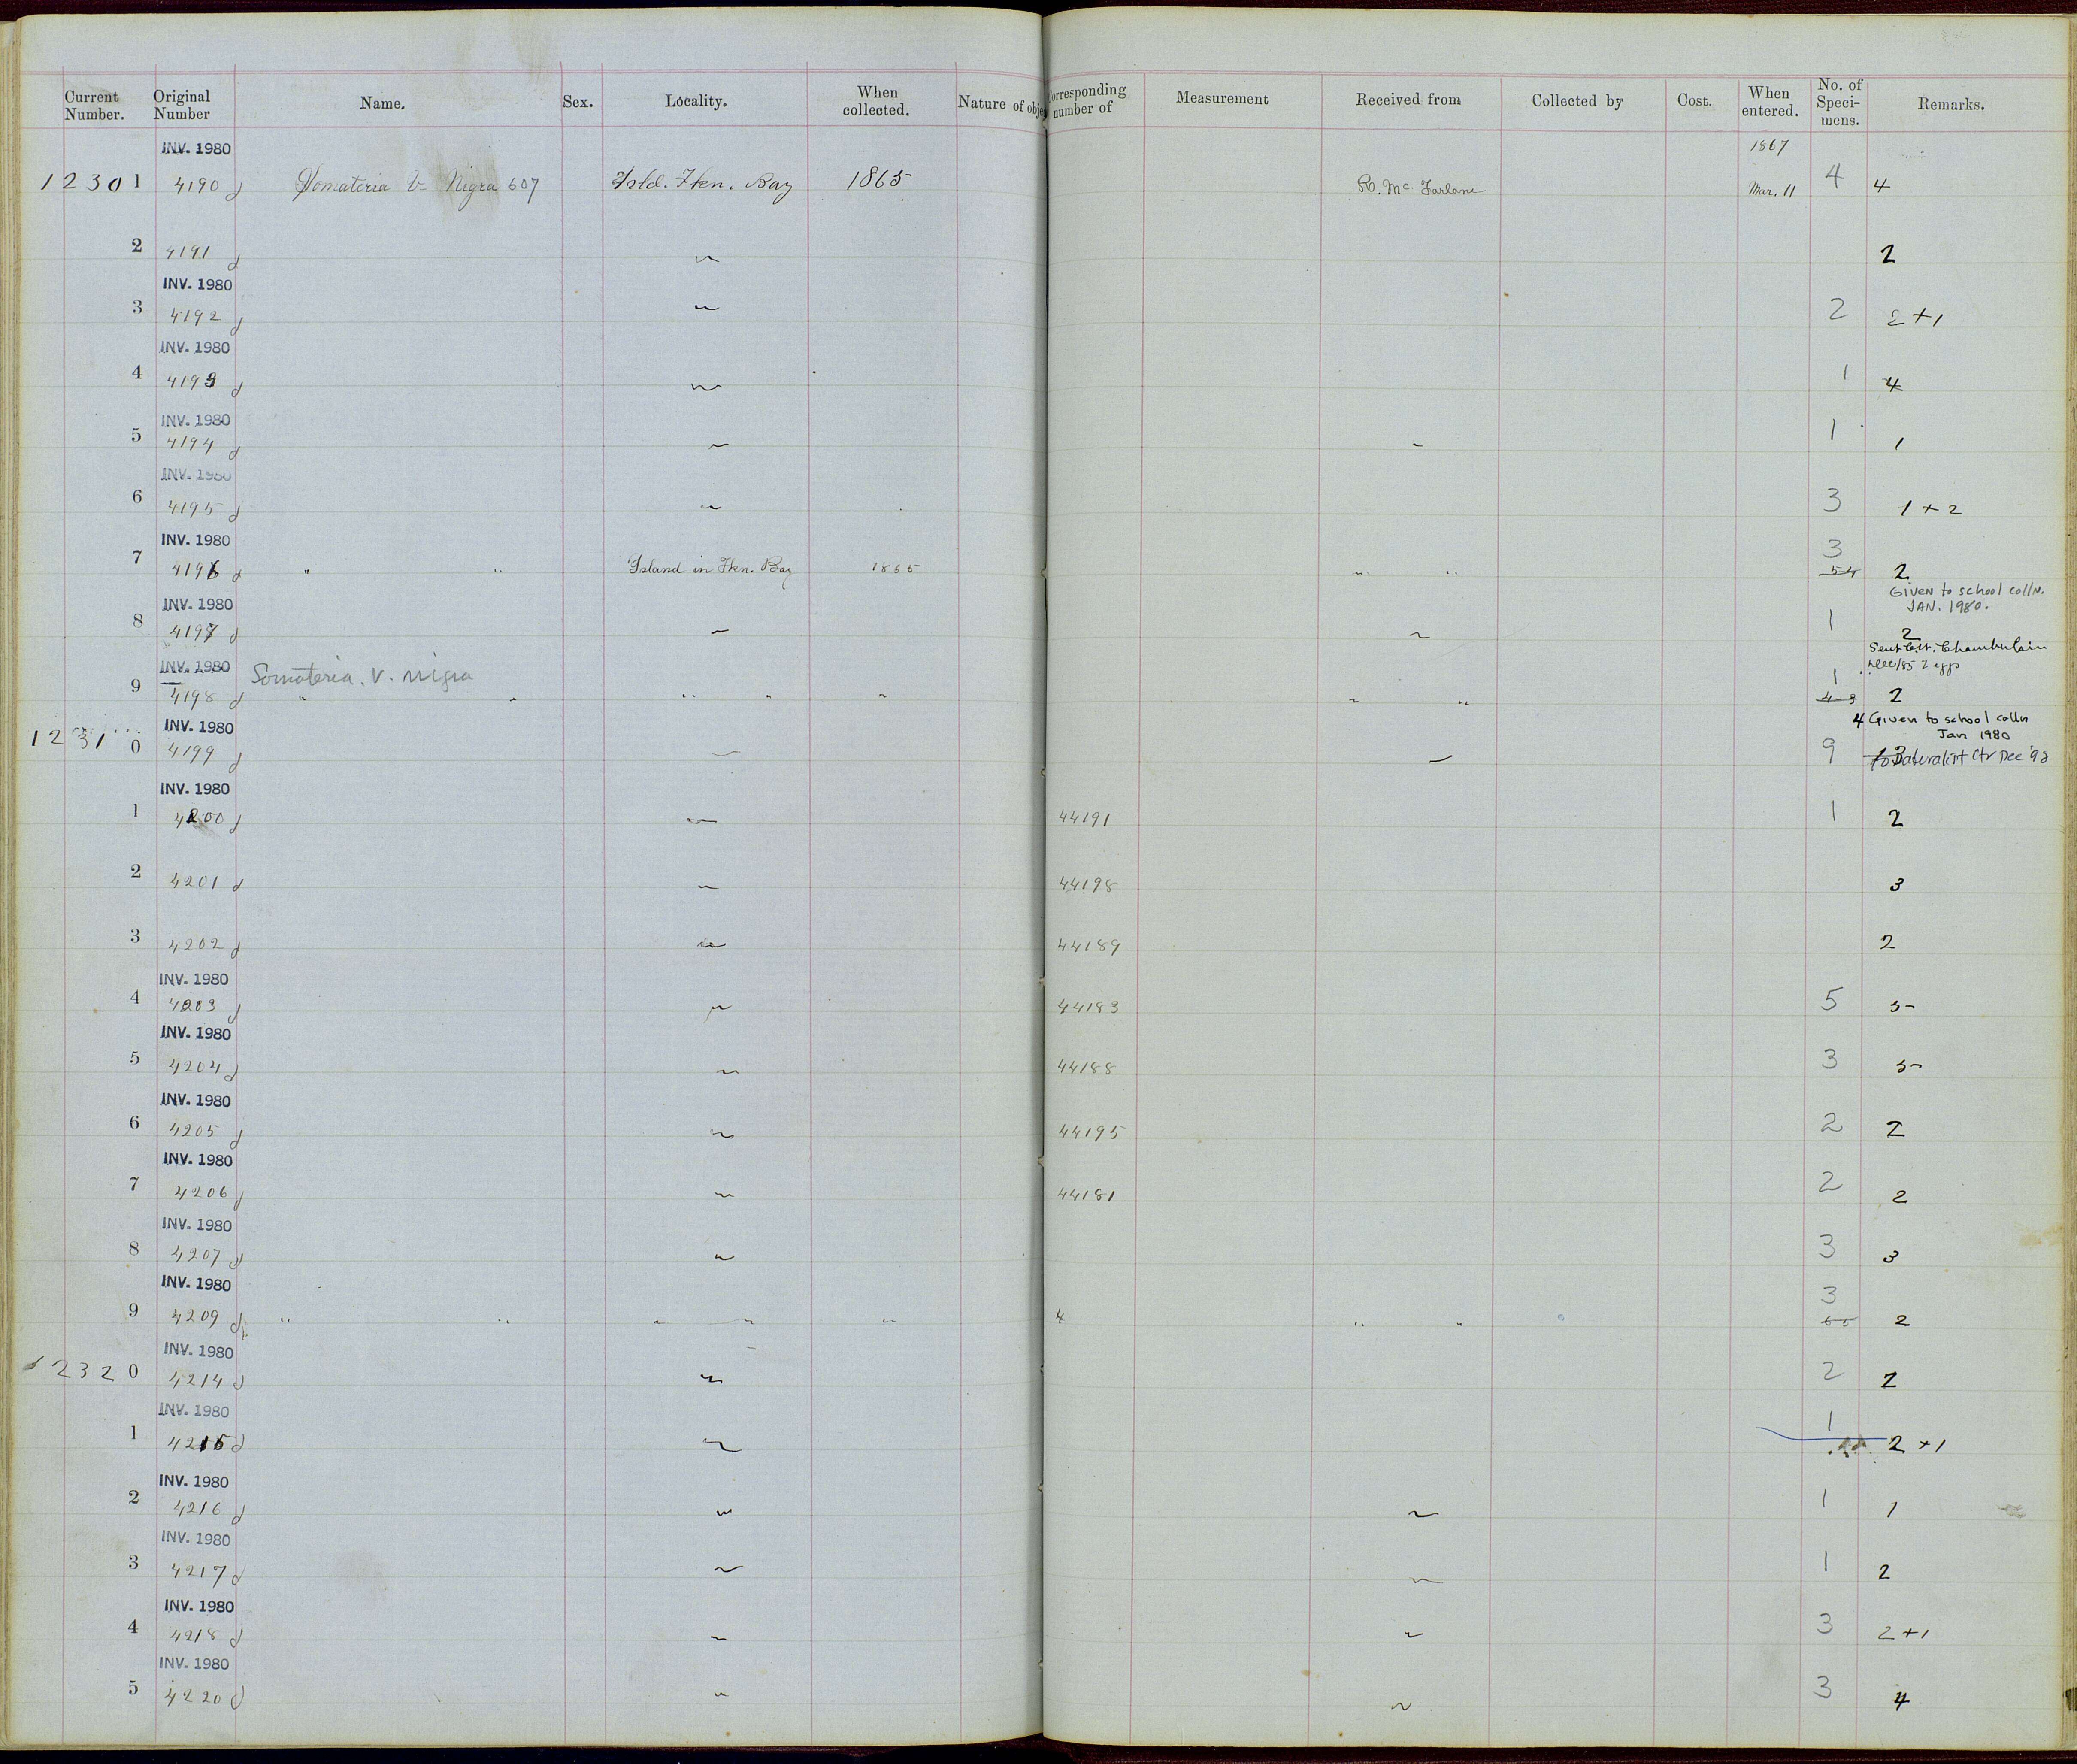 Current Number. Original Number Name. Sex. Locality. When collected. Nature of obje Corresponding number of Measurement Received from Collected by Cost. When entered. No. of Speci-mens. Remarks.
INV. 1980 1867
12301 4190 Somateria V Nigra 607 Isld. Fkn. Bay 1865 R. Mc. Farlane Mar. 11 4 4
2 4191 2
INV. 1980
3 4192 2 2+1
INV. 1980
4 4193 1 4
INV. 1980
5 4194 1 1
INV. 1980
6 4195 3 1+2
INV. 1980 3
7 4196 " " Island in Fkn. Bay 1865 " " 54 2
Given to school colln.
INV. 1980 JAN. 1980.
8 4197 1 2
Chamberlain
INV. 1980 Somateria. V. nigra Dec/85 2 eggs
1
9 4198 " " " " " " " 2
INV. 1980 4 Given to school colln
Jan 1980
12310 4199 9 to Naturalist Ctr Dec '92
INV. 1980
1 4200 44191 1 2
2 4201 44198 3
3 4202 44189 2
INV. 1980
4 4203 44183 5 5
INV. 1980
5 4204 44188 3 5
INV. 1980
6 4205 44195 2 2
INV. 1980
7 4206 44181 2 2
INV. 1980
8 4207 3 3
INV. 1980 3
9 4209 " " " " " 4 " " 2
INV. 1980
12320 4214 2 2
INV. 1980 1
1 4215 2+1
INV. 1980
2 4216 1 1
INV. 1980
3 4217 1 2
INV. 1980
4 4218 3 2+1
INV. 1980
5 4220 3 4